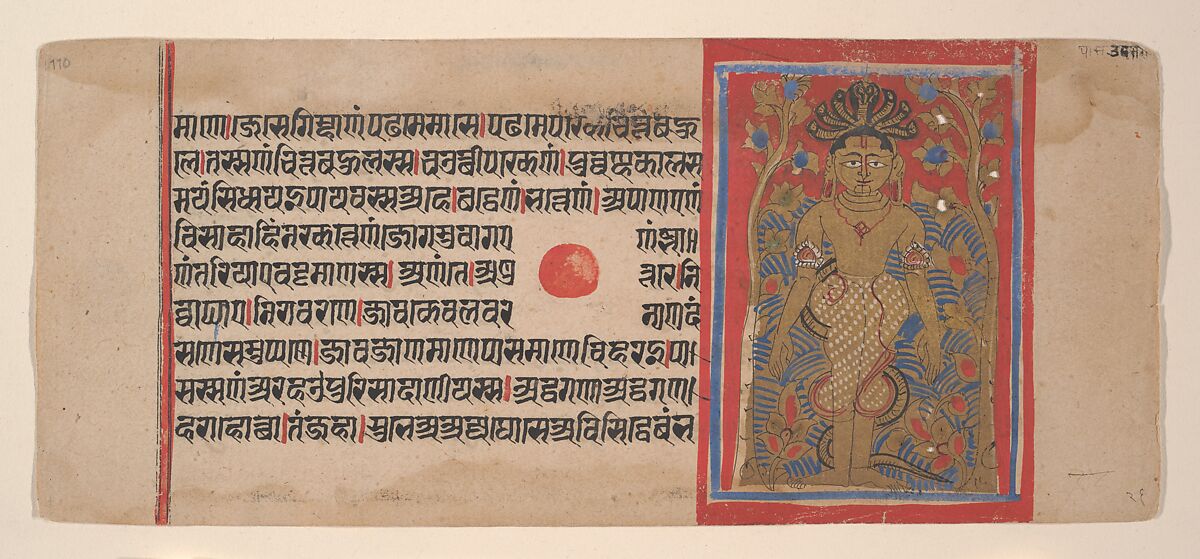 110
माणे।जे से गिम्हाणं पढमे मासे।पढमे पक्खे।चित्तबहु
ले।तस्स णं चित्तबहुलस्स।चउत्थीपक्खेणं।पुव्वण्हकालस
मयंसि धायइपायवस्स अहे।छट्ठेणं।भत्तेणं।अपाणएणं
विसाहाहिं नक्खत्तेणं।जोगमुवागए णं झा॥
णंतरियाए वट्टमाणस्स।अणंते।अणुत्तरे।नि
व्वाघाए।निरावरणे।जाव केवलवरनाणदं
सणे समुप्पण्णे।जाव जाणमाणे पासमाणे विहरइ।पा
सस्स णं अरहउ पुरिसादाणीयस्स।अट्ठ गणा अट्ठ गण।
हरा होत्था।तं जहा।सुभे अ अज्जघोसे अ वसिट्ठे बंभ